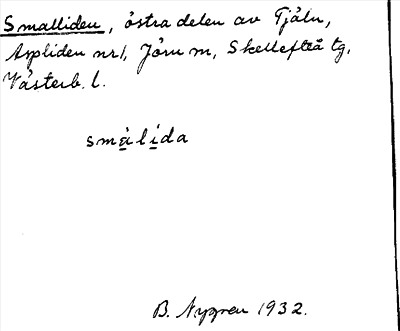 Smalliden, östra delen av Tjåln,
Aspliden nr 1, Jörn sn, Skellefteå tg,
Västerb. l.
småli̱da
B. Nygren 1932.